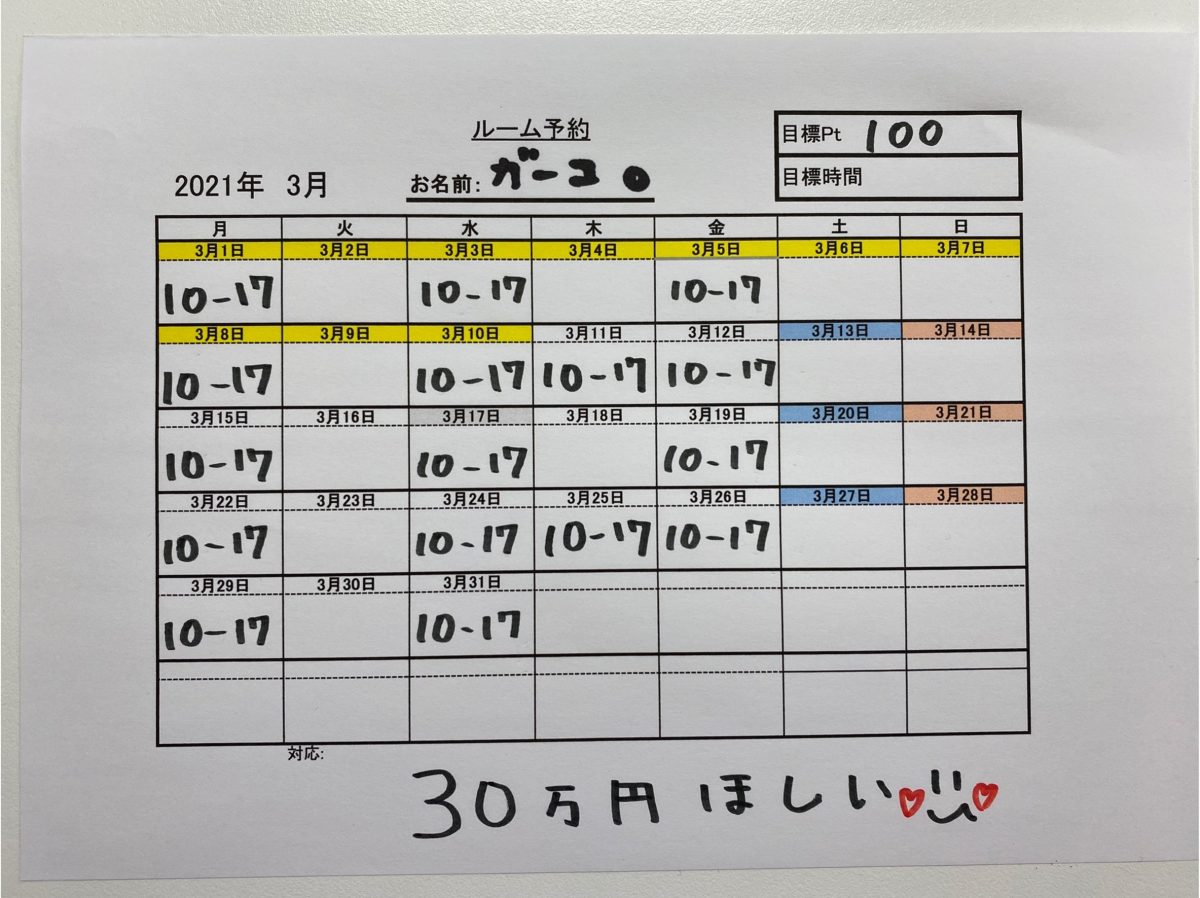 ルーム予約
目標Pt 100
2021年 3月 お名前: ガーコ
目標時間
月 火 水 木 金 土 日
3月1日 3月2日 3月3日 3月4日 3月5日 3月6日 3月7日
10-17 10-17 10-17
3月8日 3月9日 3月10日 3月11日 3月12日 3月13日 3月14日
10-17 10-17 10-17 10-17
3月15日 3月16日 3月17日 3月18日 3月19日 3月20日 3月21日
10-17 10-17 10-17
3月22日 3月23日 3月24日 3月25日 3月26日 3月27日 3月28日
10-17 10-17 10-17 10-17
3月29日 3月30日 3月31日
10-17 10-17
対応:
30万円ほしい